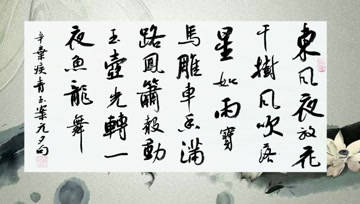 東風夜放花
千樹風吹落
星如雨寶
馬雕車香滿
路鳳簫聲動
玉壺光轉一
夜魚龍舞
辛棄疾青玉案元夕句